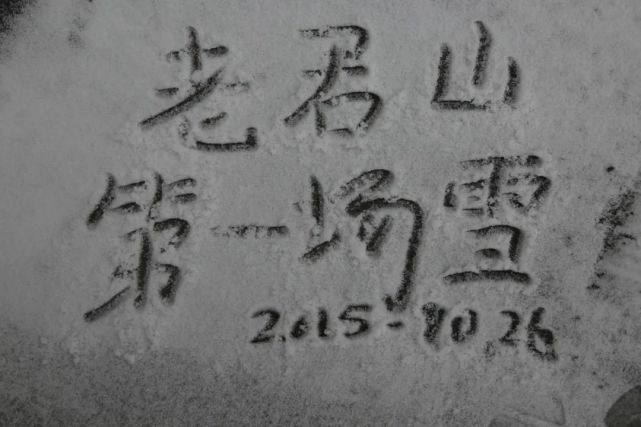 老君山
第一场雪
2015-10.26